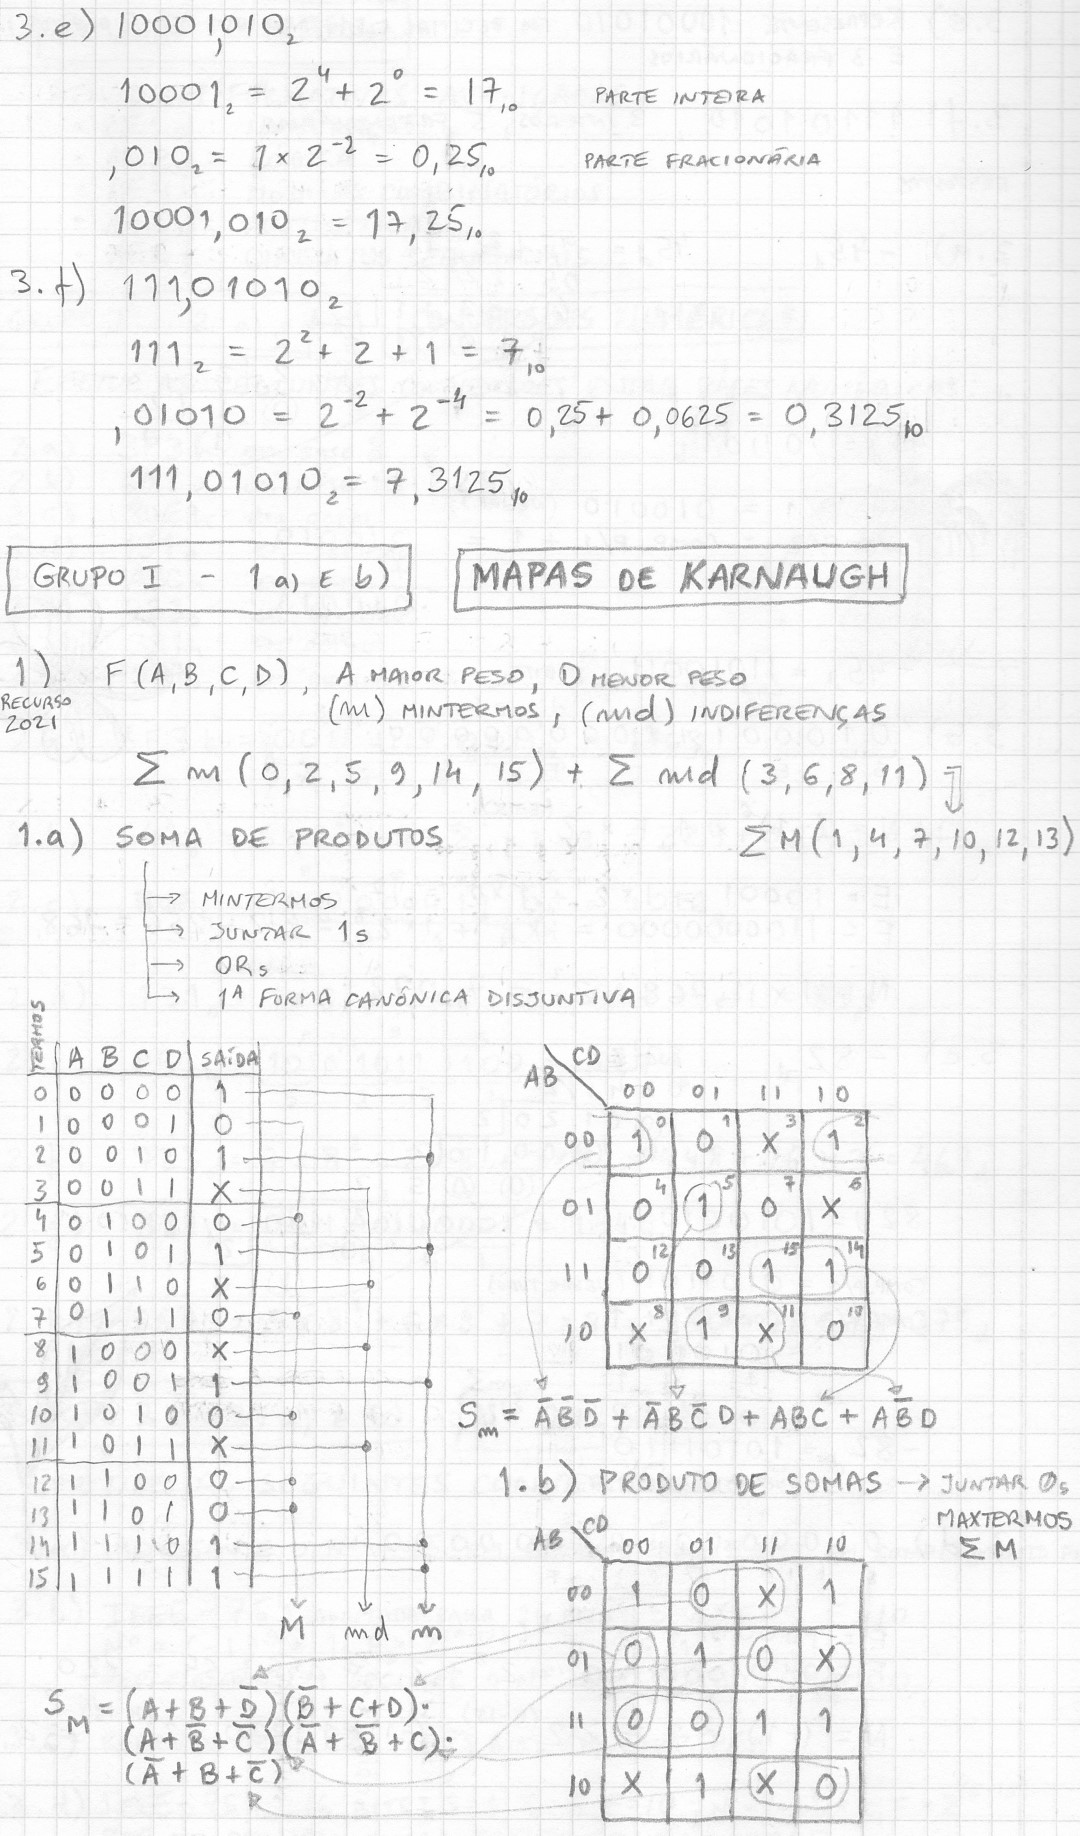 3.e) 10001,010₂
10001₂ = 2⁴ + 2⁰ = 17,₁₀ PARTE INTEIRA
,010₂ = 1 × 2⁻² = 0,25₁₀ PARTE FRACIONÁRIA
10001,010₂ = 17,25₁₀
3.f) 111,01010₂
111₂ = 2² + 2 + 1 = 7,₁₀
,01010 = 2⁻² + 2⁻⁴ = 0,25 + 0,0625 = 0,3125₁₀
111,01010₂ = 7,3125₁₀
GRUPO I - 1 a) E b) MAPAS DE KARNAUGH
1) F(A,B,C,D), A MAIOR PESO, D MENOR PESO
RECURSO
2021
(m) MINTERMOS, (md) INDIFERENÇAS
Σ m (0,2,5,9,14,15) + Σ md (3,6,8,11)
ΣM(1,4,7,10,12,13)
1.a) SOMA DE PRODUTOS
→ MINTERMOS
→ JUNTAR 1s
→ ORs
→ 1ª FORMA CANÓNICA DISJUNTIVA
TERMOS A B C D SAÍDA
0 0 0 0 0 1
1 0 0 0 1 0
2 0 0 1 0 1
3 0 0 1 1 X
4 0 1 0 0 0
5 0 1 0 1 1
6 0 1 1 0 X
7 0 1 1 1 0
8 1 0 0 0 X
9 1 0 0 1 1
10 1 0 1 0 0
11 1 0 1 1 X
12 1 1 0 0 0
13 1 1 0 1 0
14 1 1 1 0 1
15 1 1 1 1 1
M md m
AB CD
00 01 11 10
00 1 0 0 1 X 3 1 2
01 0 4 1 5 0 7 X 6
11 0 12 0 13 1 15 1 14
10 X 8 1 9 X 11 0 10
Sₘ = A̅B̅D̅ + A̅BC̅D + ABC + AB̅D
1.b) PRODUTO DE SOMAS → JUNTAR 0s
MAXTERMOS
ΣM
AB CD
00 01 11 10
00 1 0 X 1
01 0 1 0 X
11 0 0 1 1
10 X 1 X 0
S_M = (A+B+D̅)(B̅+C+D)·
(A+B̅+C̅)(A̅+B̅+C)·
(A̅+B+C̅)